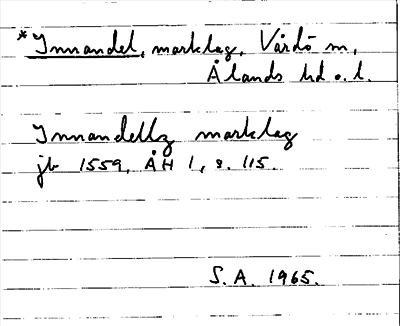 *Innandel, marklag, Vårdö sn,
Ålands hd o. l.
Innandellz marklag
jb 1559, ÅH 1, s. 115.
S.A. 1965.